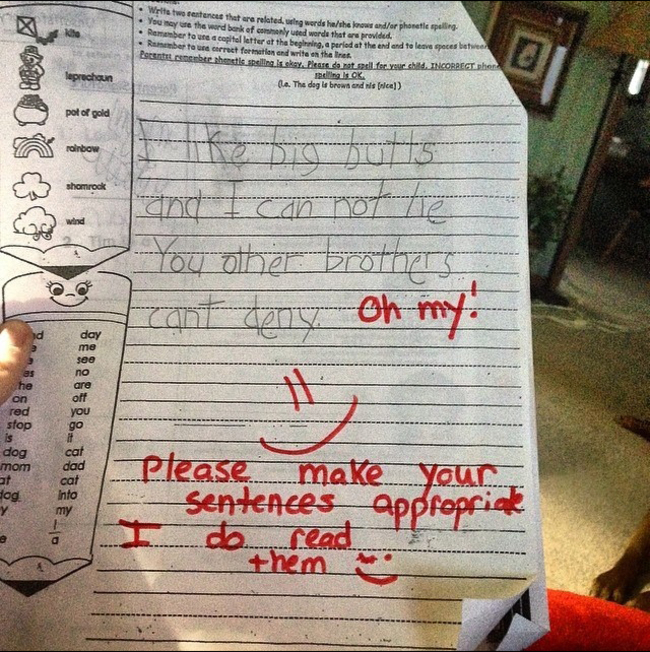 • Write two sentences that are related, using words he/she knows and/or phonetic spelling.
• You may use the word bank of commonly used words that are provided.
• Remember to use a capital letter at the beginning, a period at the end and to leave spaces between
• Remember to use correct formation and write on the lines.
Parents: remember phonetic spelling is okay. Please do not spell for your child. INCORRECT phon
spelling is OK.
(i.e. The dog is brown and nis [nice] )
kite
leprechaun
pot of gold
rainbow
shamrock
wind
I like big butts
and I can not lie
You other brothers
cant deny. Oh my!
Please make your
sentences appropriate
I do read
them
day
me
see
as no
he are
on off
red you
stop go
is it
dog cat
mom dad
at cat
dog into
y my
I
e a